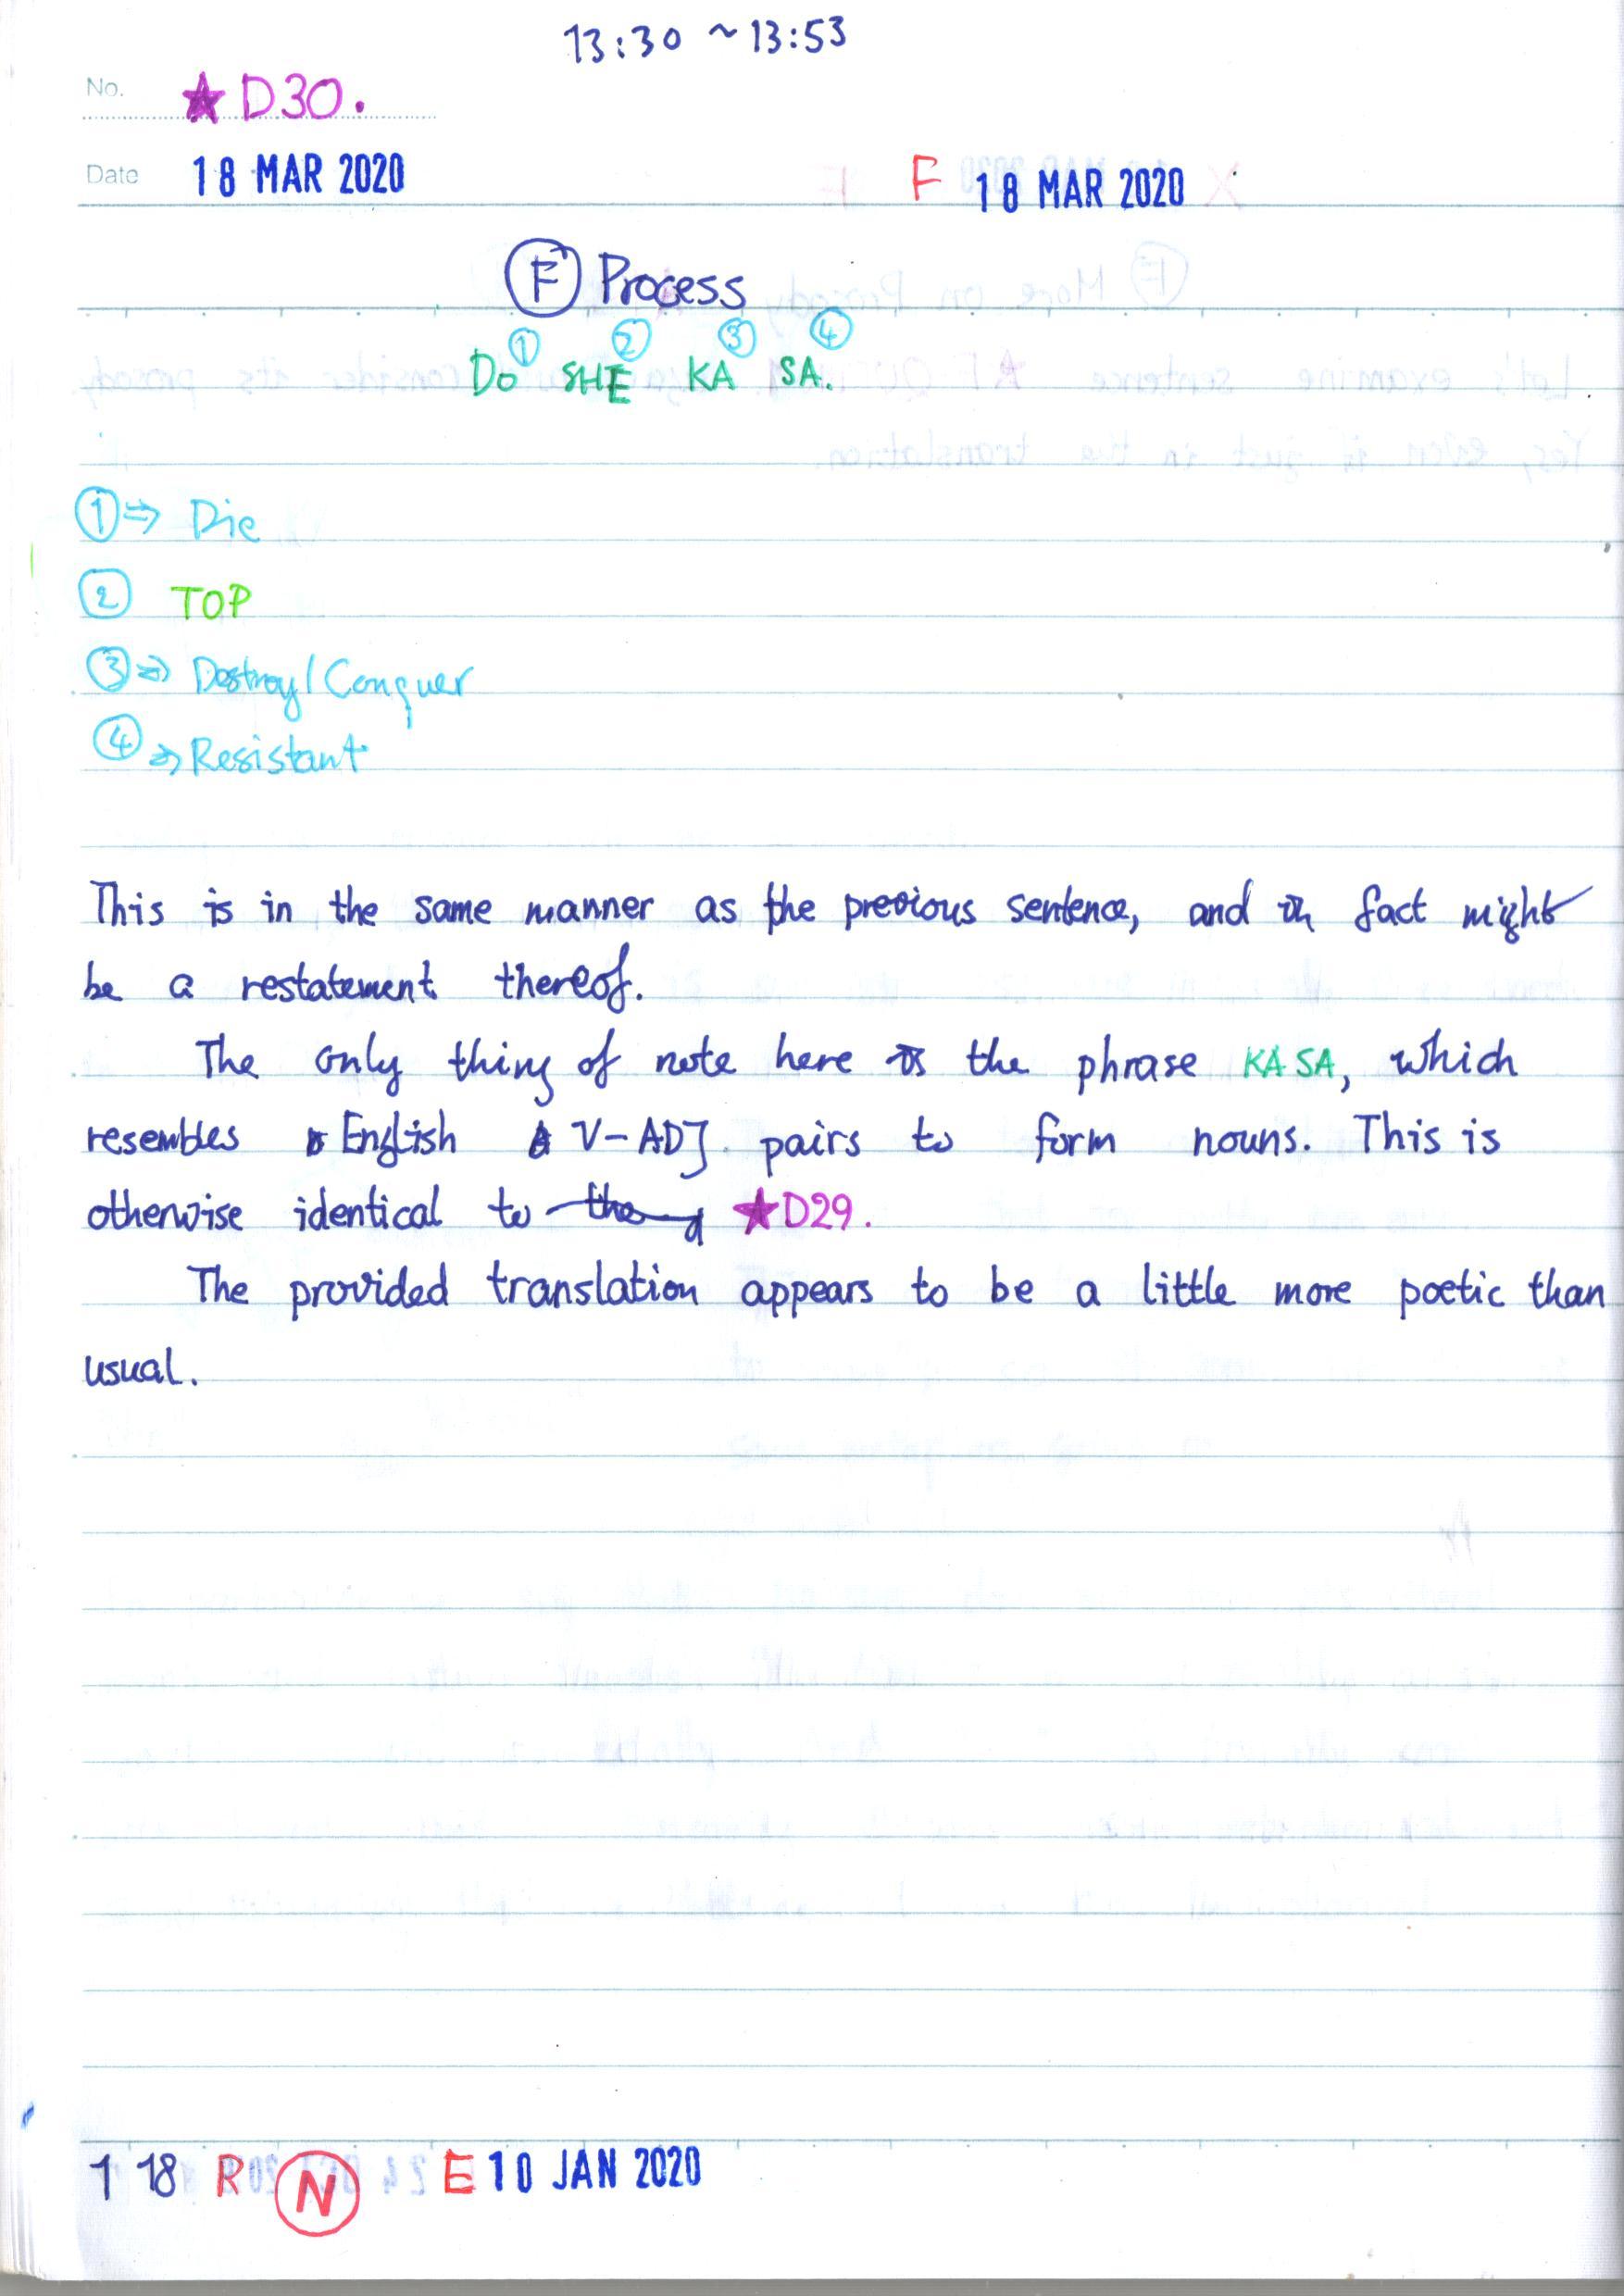 13:30 ~ 13:53
No. ★ D30.
Date 18 MAR 2020 F 18 MAR 2020
Ⓕ Process
① ② ③ ④
Do SHE KA SA.
① ⇒ Die
② TOP
③ ⇒ Destroy/Conquer
④ ⇒ Resistant
This is in the same manner as the previous sentence, and in fact might
be a restatement thereof.
The only thing of note here is the phrase KA SA, which
resembles English V-ADJ pairs to form nouns. This is
otherwise identical to ★D29.
The provided translation appears to be a little more poetic than
usual.
118 R Ⓝ E 10 JAN 2020